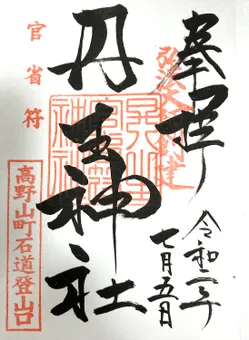 奉拝
弘法大師創建
丹生神社
官省符
高野山町石道登山口
令和二年
七月五日